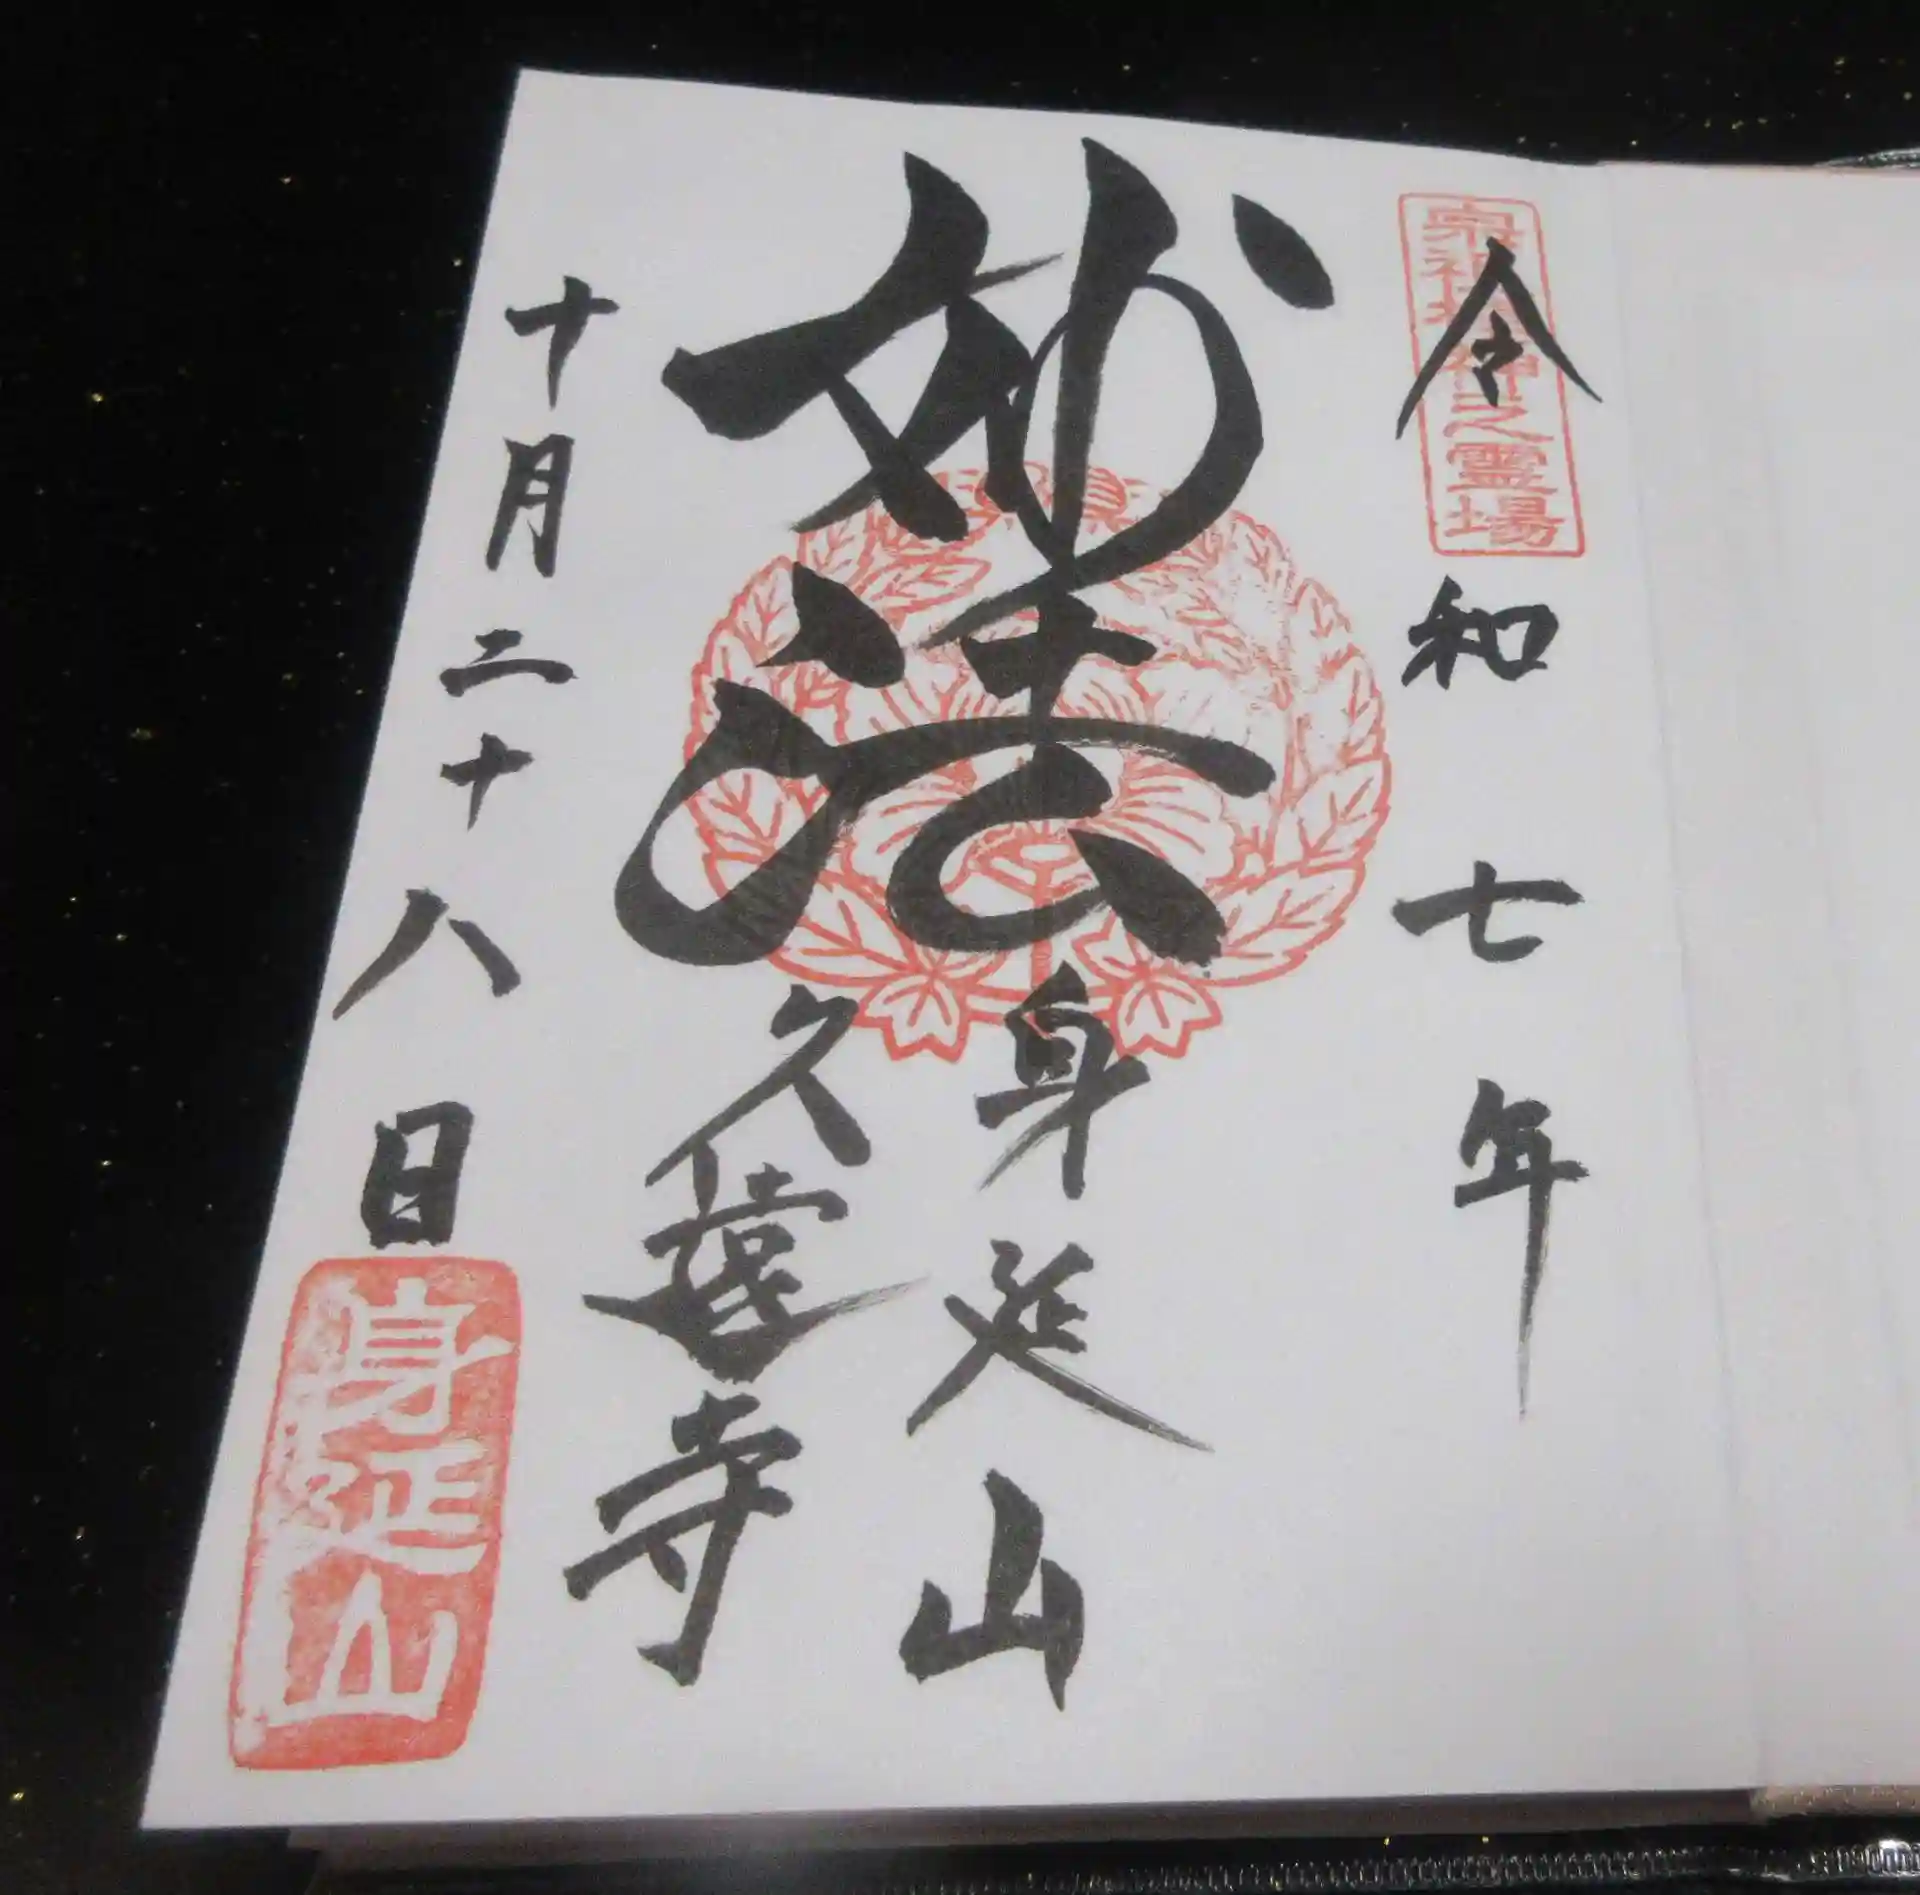 令和七年
宗祖棲神之霊場
妙法
身延山
久遠寺
十月二十八日
身延山